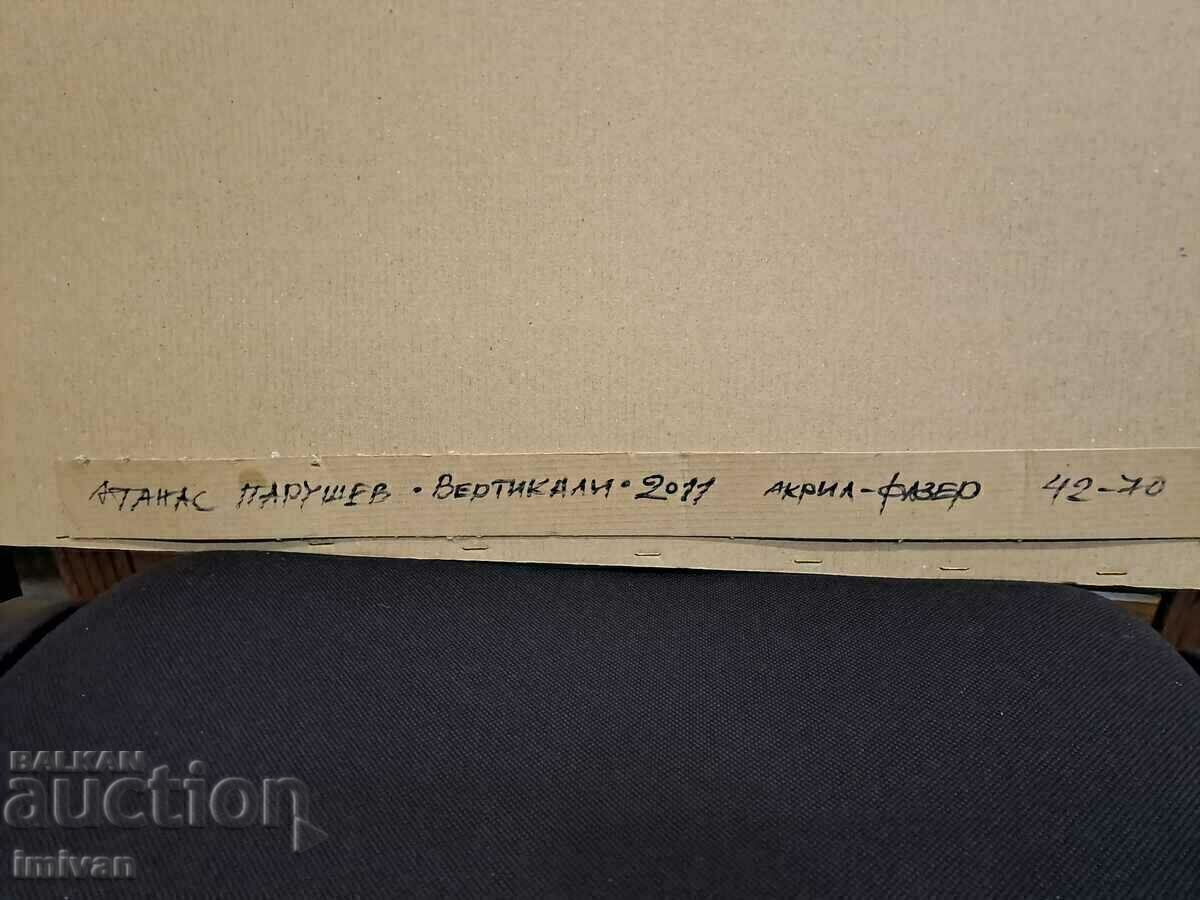 Атанас Парушев • Вертикали • 2011 акрил-фазер 42-70
BALKAN
auction
imivan